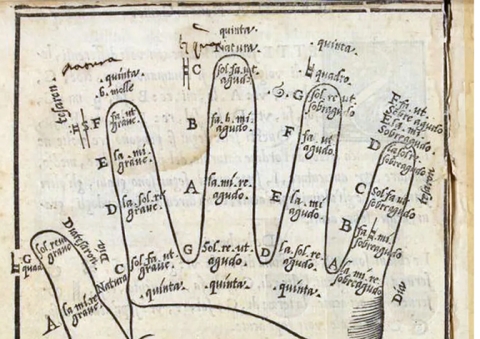 quinta.
natura
quinta.
quinta.
b. molle
C
sol. fa. ut.
agudo.
quadro.
G
sol. re. ut.
sobreagudo.
F
fa. ut
graue.
B
fa. b. mi.
agudo.
F
fa. ut
agudo.
E. fa. ut.
Sobreagudo
E. la. mi.
Sobreagudo
D
la. sol. re.
sobreagudo.
E
la. mi.
graue.
A
la. mi. re.
agudo.
E
la. mi.
agudo.
C
Sol. fa. ut
sobreagudo
D
la. sol. re
graue.
B
fa. b. mi.
sobreagudo
G
sol. re. ut
graue
Diatessaron.
Natura
C
sol. fa. ut.
graue.
G
Sol. re. ut
agudo.
D
la. sol. re.
agudo.
A
la. mi. re.
sobreagudo
quinta.
quinta.
quinta.
A
la. mi. re
graue.
Dia